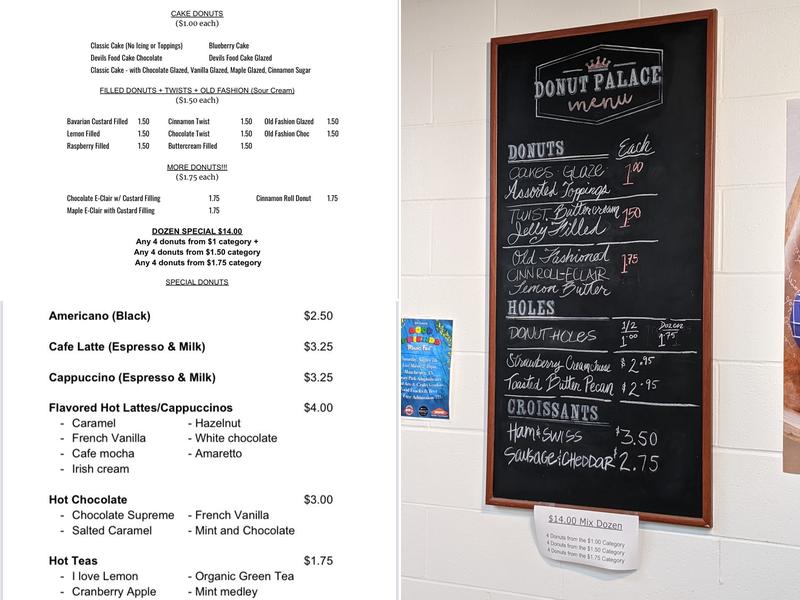 CAKE DONUTS
($1.00 each)
Classic Cake (No Icing or Toppings) Blueberry Cake
Devils Food Cake Chocolate Devils Food Cake Glazed
Classic Cake - with Chocolate Glazed, Vanilla Glazed, Maple Glazed, Cinnamon Sugar
FILLED DONUTS + TWISTS + OLD FASHION (Sour Cream)
($1.50 each)
Bavarian Custard Filled 1.50 Cinnamon Twist 1.50 Old Fashion Glazed 1.50
Lemon Filled 1.50 Chocolate Twist 1.50 Old Fashion Choc 1.50
Raspberry Filled 1.50 Buttercream Filled 1.50
MORE DONUTS!!!
($1.75 each)
Chocolate E-Clair w/ Custard Filling 1.75 Cinnamon Roll Donut 1.75
Maple E-Clair with Custard Filling 1.75
DOZEN SPECIAL $14.00
Any 4 donuts from $1 category +
Any 4 donuts from $1.50 category
Any 4 donuts from $1.75 category
SPECIAL DONUTS
Americano (Black) $2.50
Cafe Latte (Espresso & Milk) $3.25
Cappuccino (Espresso & Milk) $3.25
Flavored Hot Lattes/Cappuccinos $4.00
- Caramel - Hazelnut
- French Vanilla - White chocolate
- Cafe mocha - Amaretto
- Irish cream
Hot Chocolate $3.00
- Chocolate Supreme - French Vanilla
- Salted Caramel - Mint and Chocolate
Hot Teas $1.75
- I love Lemon - Organic Green Tea
- Cranberry Apple - Mint medley
DONUT PALACE
menu
DONUTS Each
CAKES GLAZE 1.00
Assorted Toppings
TWIST, Buttercream 1.50
Jelly Filled
Old Fashioned 1.75
CINN ROLL-ECLAIR
Lemon Butter
HOLES
DONUT HOLES 1/2 1.00 Dozen 1.75
Strawberry Cream Cheese $2.95
Toasted Butter Pecan $2.95
CROISSANTS
HAM & SWISS $3.50
SAUSAGE & CHEDDAR $2.75
$14.00 Mix Dozen
4 Donuts from the $1.00 Category
4 Donuts from the $1.50 Category
4 Donuts from the $1.75 Category